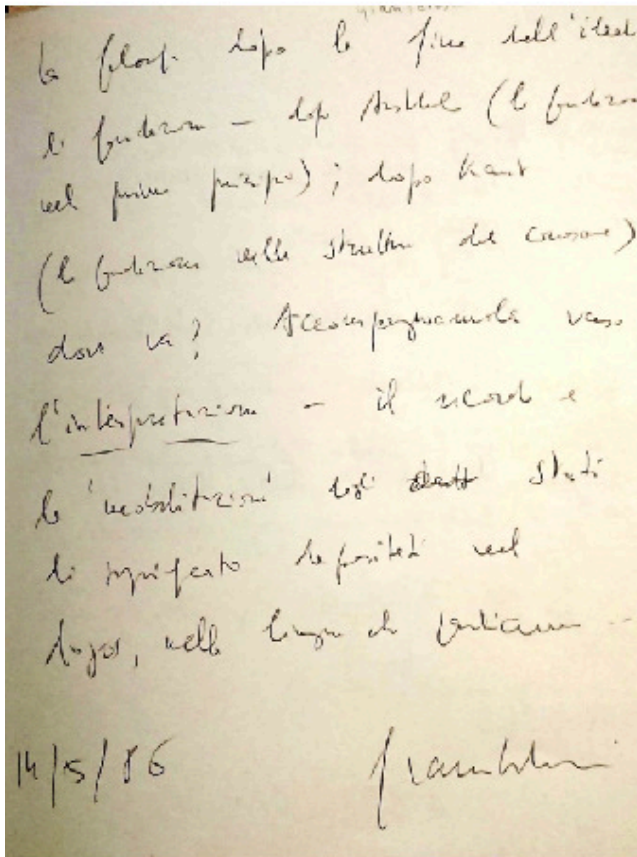 la filosofi dopo la fine dell'idea
di fondazione – dopo Aristotele (la fondazione
nel primo principio); dopo Kant
(la fondazione nelle strutture del conoscere)
dove va? Accompagnamola verso
l'interpretazione – il ricordo e
la 'riabilitazioni' degli strati
di significato depositati nel
logos, nella lingua che parliamo –
14/5/86